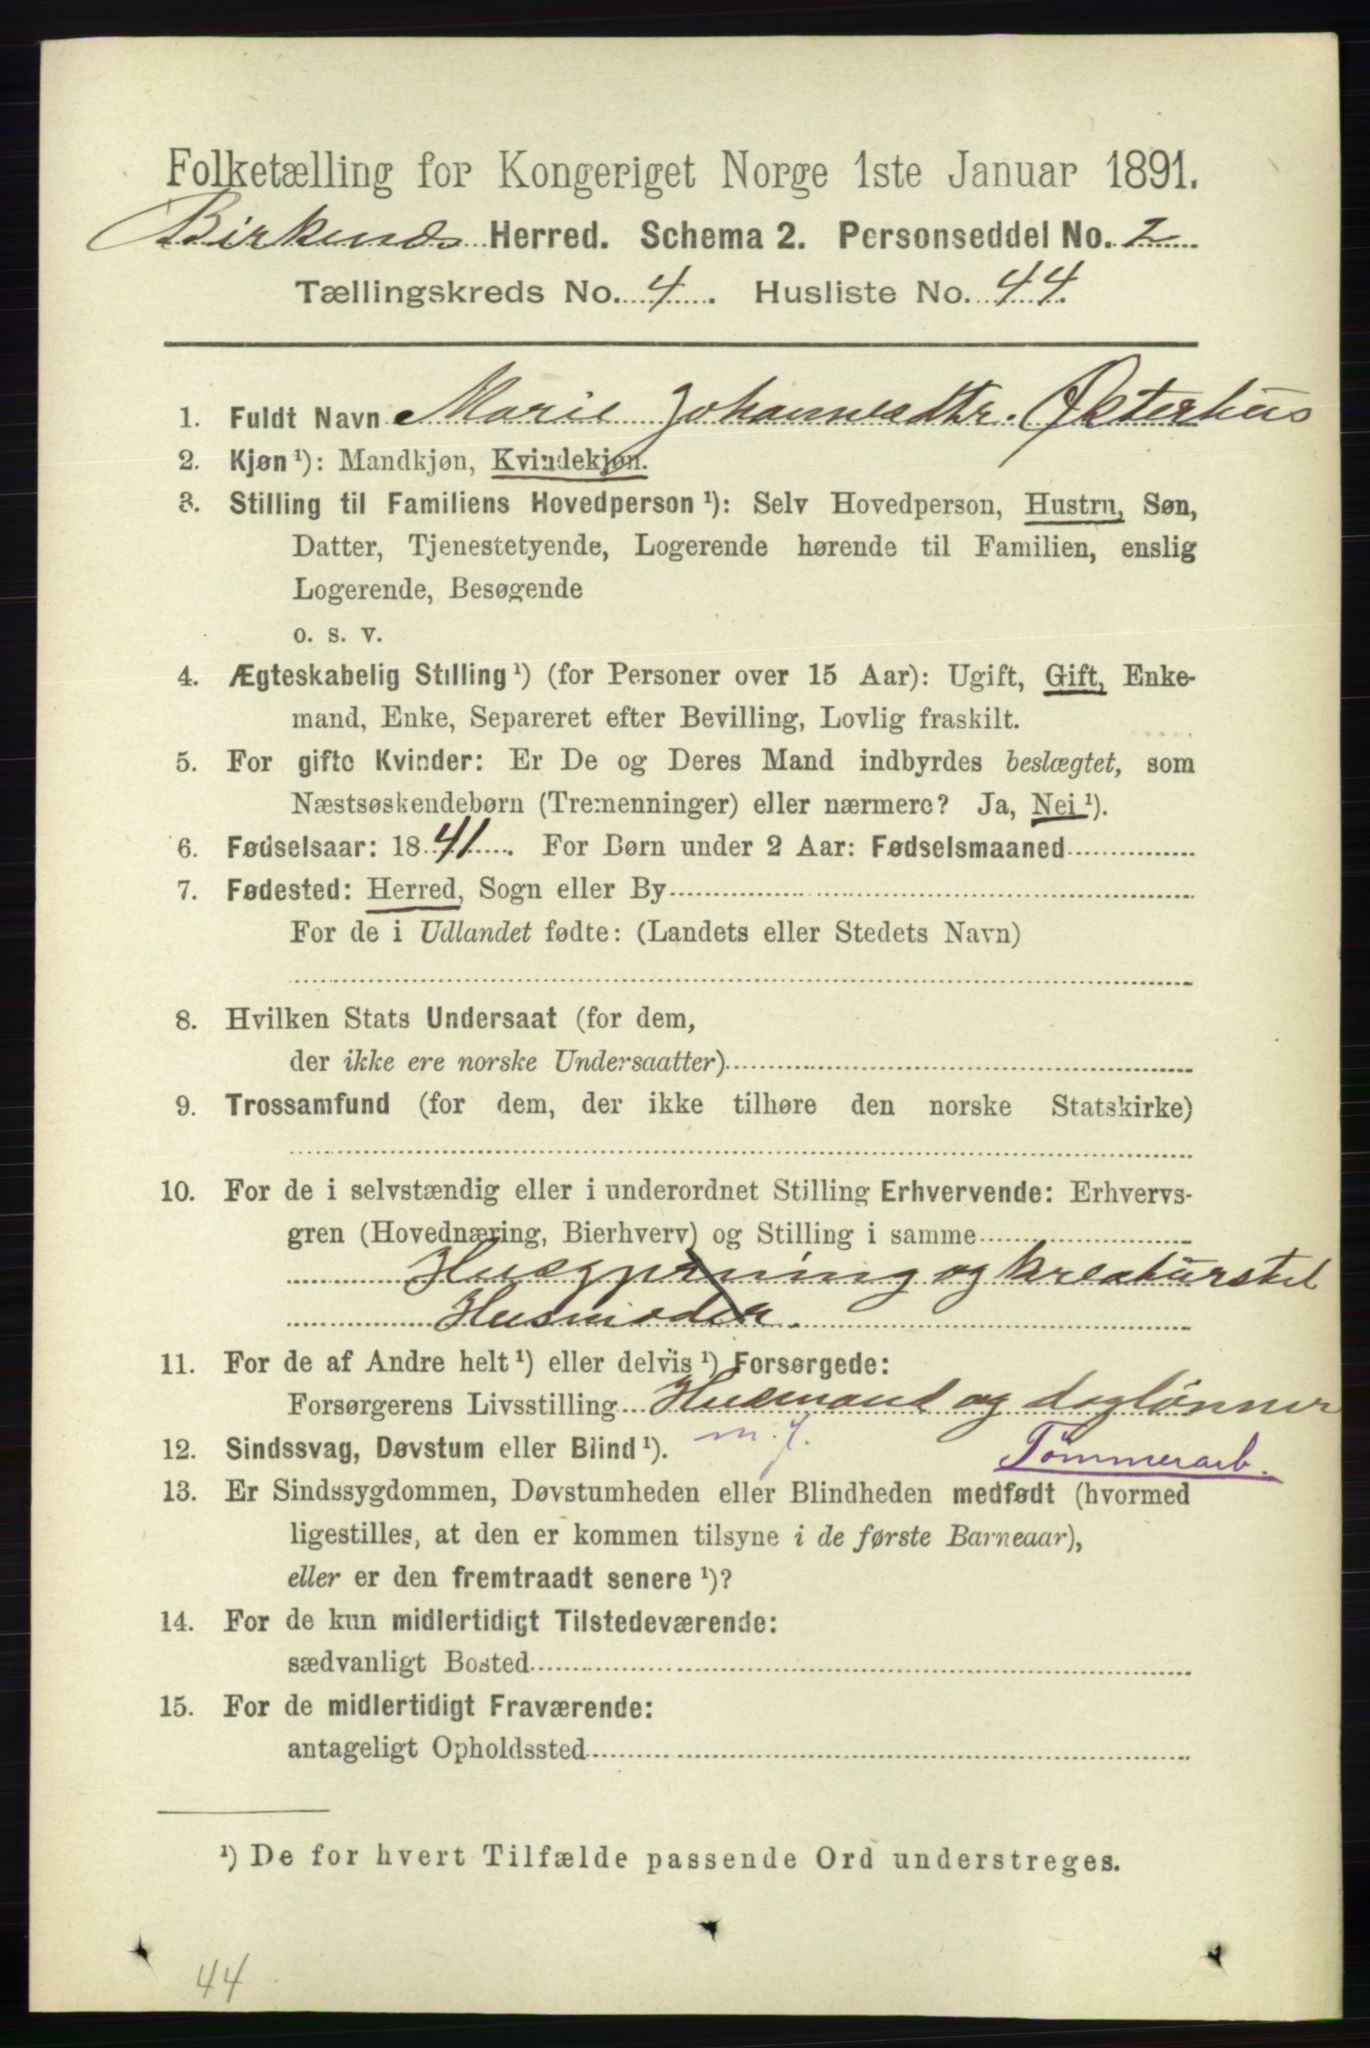 Folketælling for Kongeriget Norge 1ste Januar 1891.
Birkenæs Herred. Schema 2. Personseddel No. 2
Tællingskreds No. 4. Husliste No. 44.
1. Fuldt Navn Marie Johannesdtr. Østerhus
2. Kjøn ¹): Mandkjøn, Kvindekjøn.
3. Stilling til Familiens Hovedperson ¹): Selv Hovedperson, Hustru, Søn,
Datter, Tjenestetyende, Logerende hørende til Familien, enslig
Logerende, Besøgende
o. s. v.
4. Ægteskabelig Stilling ¹) (for Personer over 15 Aar): Ugift, Gift, Enke-
mand, Enke, Separeret efter Bevilling, Lovlig fraskilt.
5. For gifte Kvinder: Er De og Deres Mand indbyrdes beslægtet, som
Næstsøskendebørn (Tremenninger) eller nærmere? Ja, Nei ¹).
6. Fødselsaar: 1841. For Børn under 2 Aar: Fødselsmaaned
7. Fødested: Herred, Sogn eller By
For de i Udlandet fødte: (Landets eller Stedets Navn)
8. Hvilken Stats Undersaat (for dem,
der ikke ere norske Undersaatter)
9. Trossamfund (for dem, der ikke tilhøre den norske Statskirke)
10. For de i selvstændig eller i underordnet Stilling Erhvervende: Erhvervs-
gren (Hovednæring, Bierhverv) og Stilling i samme
Husgjerning og kreaturstel
Husmoder.
11. For de af Andre helt ¹) eller delvis ¹) Forsørgede:
Forsørgerens Livsstilling Husmand og daglønner
m. j. Tømmerarb.
12. Sindssvag, Døvstum eller Blind ¹).
13. Er Sindssygdommen, Døvstumheden eller Blindheden medfødt (hvormed
ligestilles, at den er kommen tilsyne i de første Barneaar),
eller er den fremtraadt senere ¹)?
14. For de kun midlertidigt Tilstedeværende:
sædvanligt Bosted
15. For de midlertidigt Fraværende:
antageligt Opholdssted
¹) De for hvert Tilfælde passende Ord understreges.
44